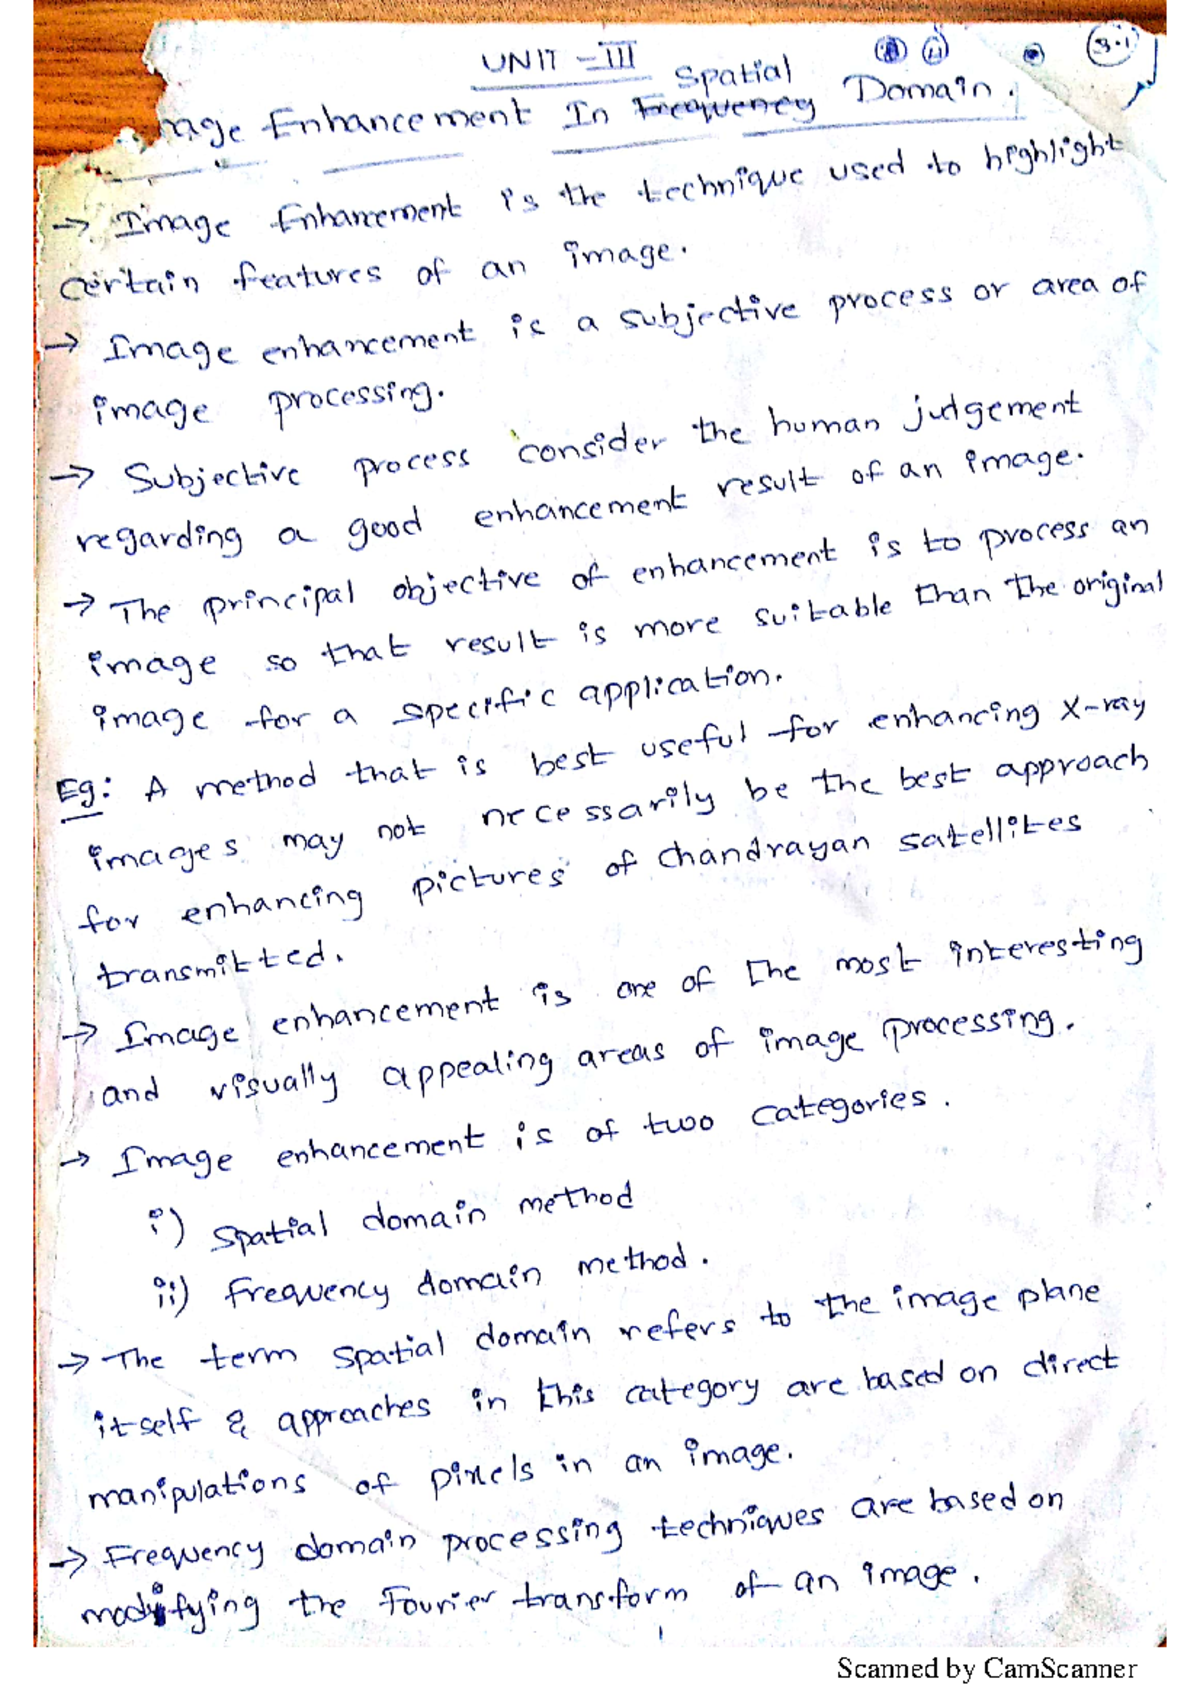 UNIT - III
3.1
Spatial
age Enhancement In Frequency Domain.
→ Image Enhancement is the technique used to highlight
certain features of an image.
→ Image enhancement is a subjective process or area of
image processing.
→ Subjective process consider the human judgement
regarding a good enhancement result of an image.
→ The principal objective of enhancement is to process an
image so that result is more suitable than the original
image for a specific application.
Eg: A method that is best useful for enhancing X-ray
images may not necessarily be the best approach
for enhancing pictures of chandrayan satellites
transmitted.
→ Image enhancement is one of the most interesting
and visually appealing areas of image processing.
→ Image enhancement is of two categories.
i) Spatial domain method
ii) Frequency domain method.
→ The term spatial domain refers to the image plane
itself & approaches in this category are based on direct
manipulations of pixels in an image.
→ Frequency domain processing techniques are based on
modifying the Fourier transform of an image.
Scanned by CamScanner